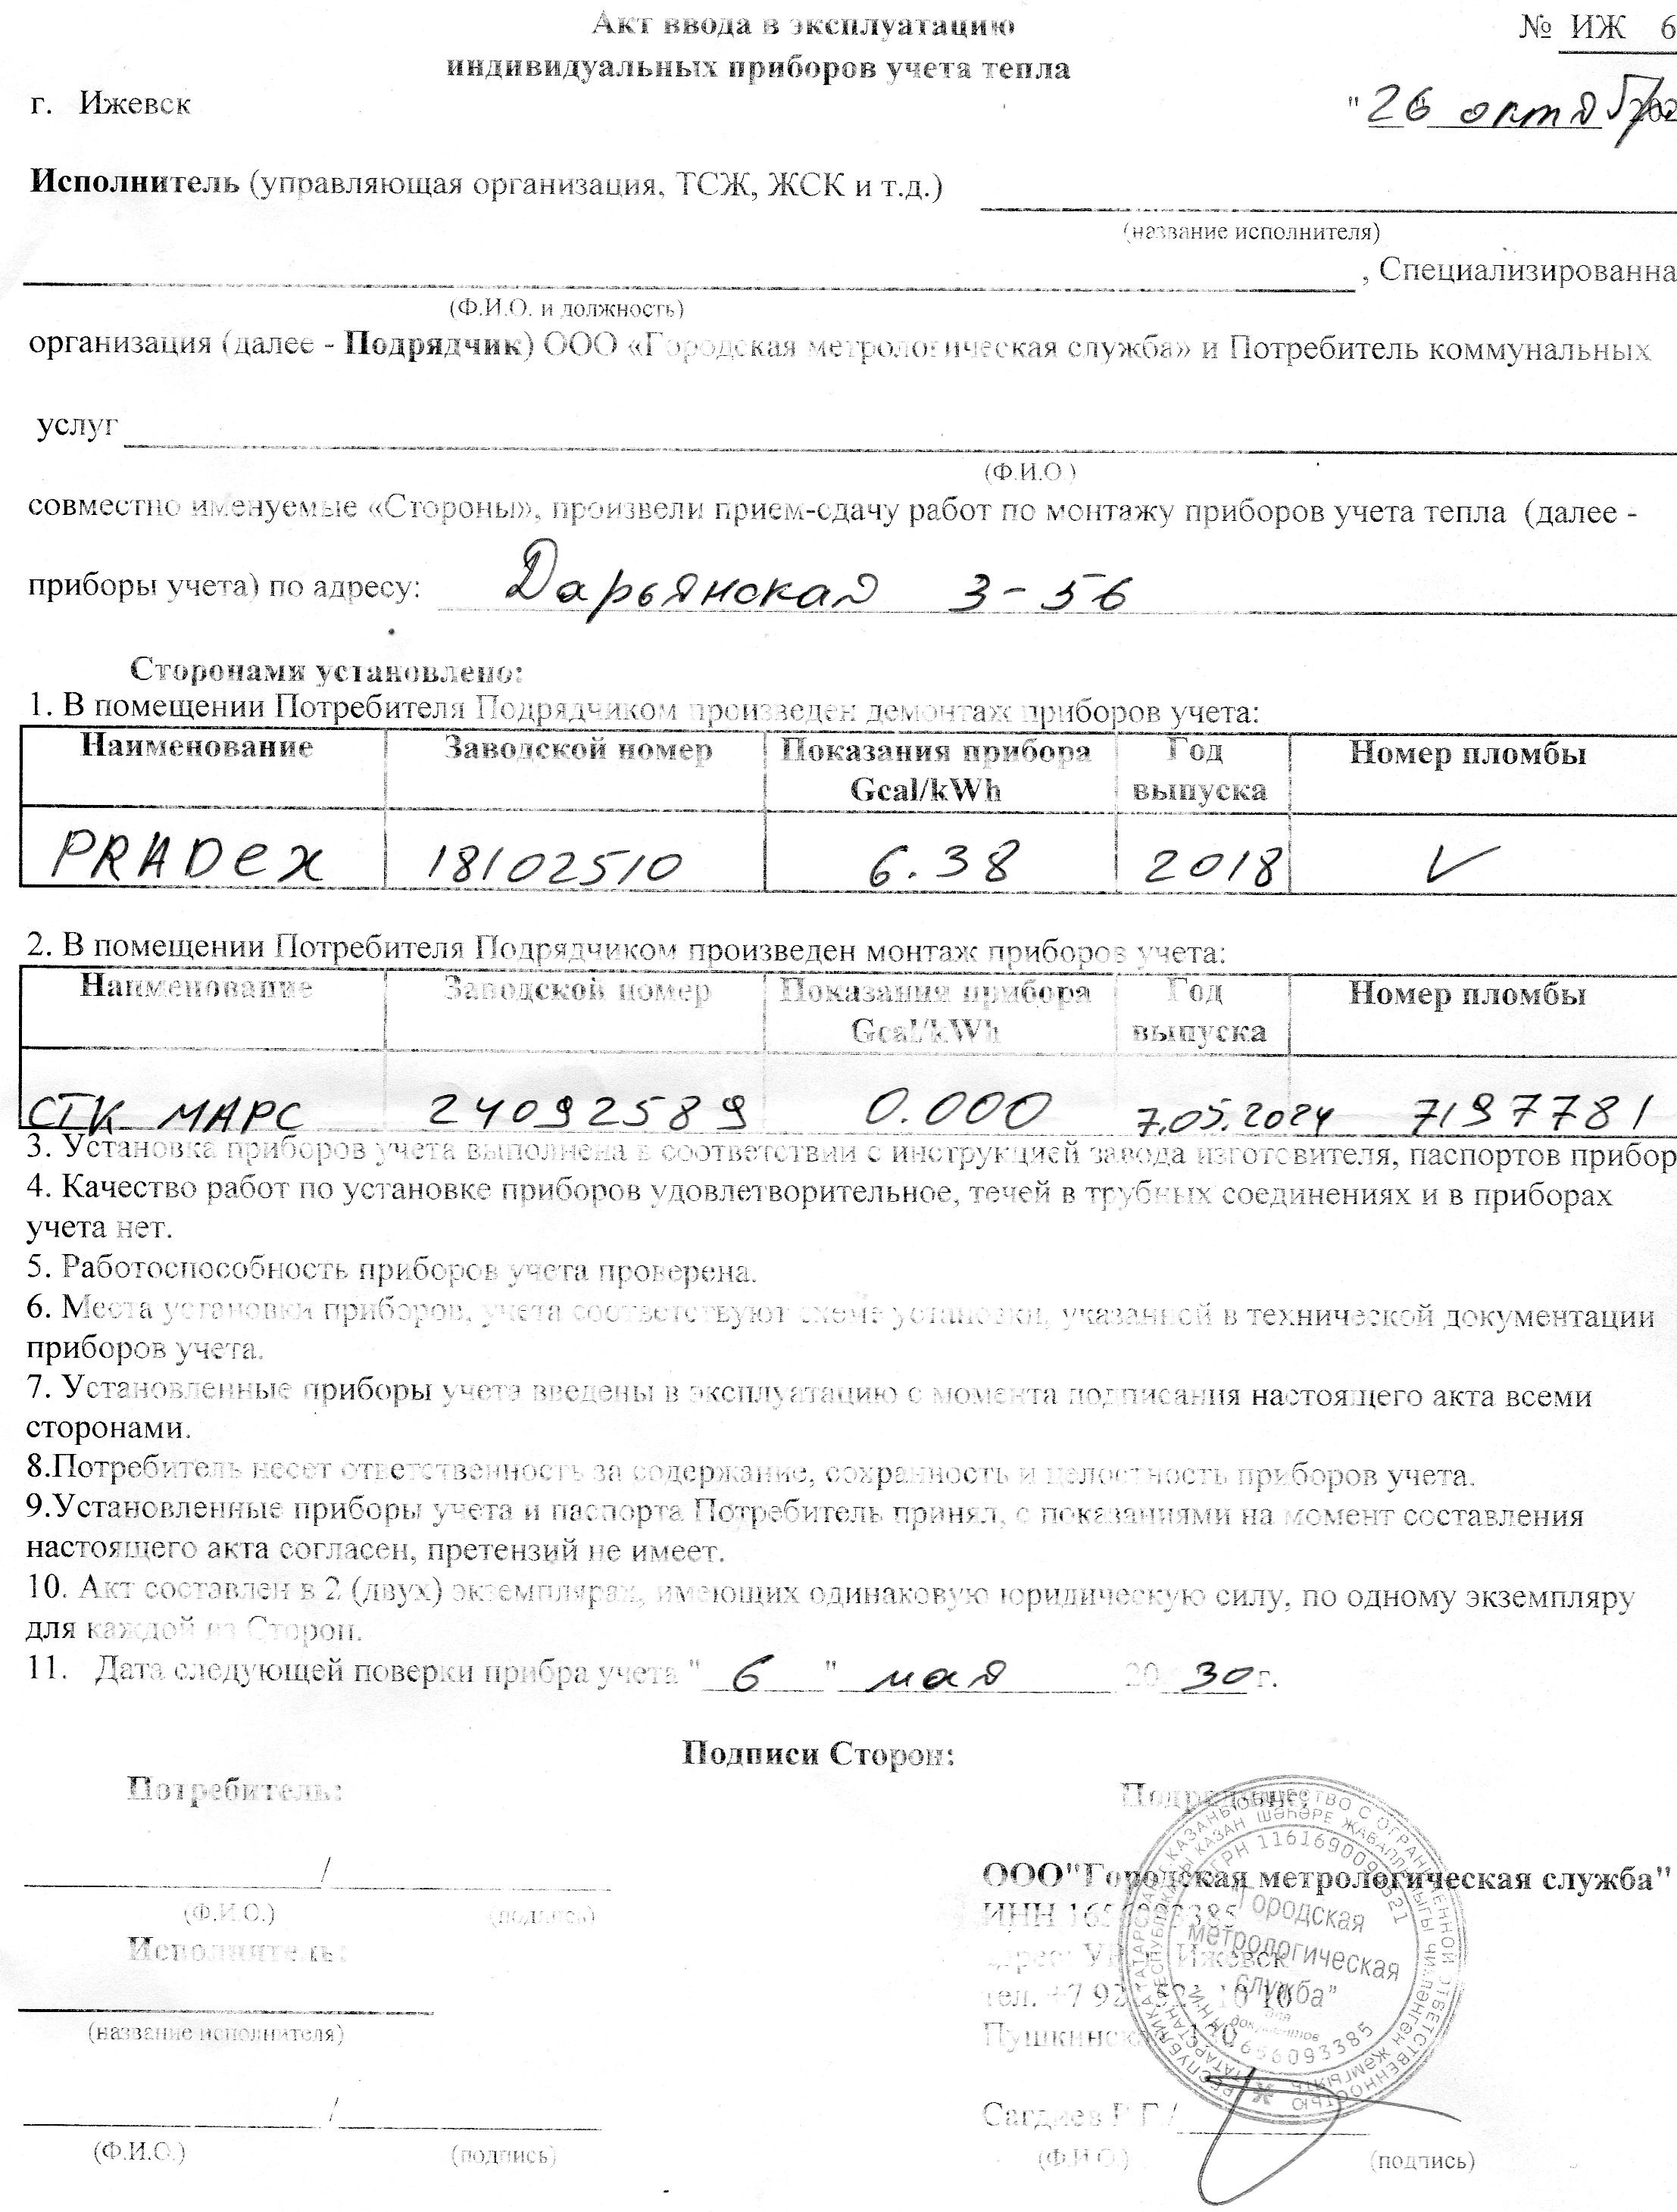 Акт ввода в эксплуатацию
индивидуальных приборов учета тепла
№ ИЖ 6
г. Ижевск
"26 октяб
Исполнитель (управляющая организация, ТСЖ, ЖСК и т.д.)
(название исполнителя)
, Специализированна
(Ф.И.О. и должность)
организация (далее - Подрядчик) ООО «Городская метрологическая служба» и Потребитель коммунальных
услуг
(Ф.И.О )
совместно именуемые «Стороны», произвели прием-сдачу работ по монтажу приборов учета тепла (далее -
приборы учета) по адресу: Дарьянская 3-56
Сторонами установлено:
1. В помещении Потребителя Подрядчиком произведен демонтаж приборов учета:
Наименование Заводской номер Показания прибора Gcal/kWh Год выпуска Номер пломбы
PRADEX 18102510 6.38 2018 V
2. В помещении Потребителя Подрядчиком произведен монтаж приборов учета:
Наименование Заводской номер Показания прибора Gcal/kWh Год выпуска Номер пломбы
СТК МАРС 24092589 0.000 7.05.2024 7197781
3. Установка приборов учета выполнена в соответствии с инструкцией завода изготовителя, паспортов прибор
4. Качество работ по установке приборов удовлетворительное, течей в трубных соединениях и в приборах
учета нет.
5. Работоспособность приборов учета проверена.
6. Места установки приборов, учета соответствуют схеме установки, указанной в технической документации
приборов учета.
7. Установленные приборы учета введены в эксплуатацию с момента подписания настоящего акта всеми
сторонами.
8.Потребитель несет ответственность за содержание, сохранность и целостность приборов учета.
9.Установленные приборы учета и паспорта Потребитель принял, с показаниями на момент составления
настоящего акта согласен, претензий не имеет.
10. Акт составлен в 2 (двух) экземплярах, имеющих одинаковую юридическую силу, по одному экземпляру
для каждой из Сторон.
11. Дата следующей поверки прибра учета "6" мая 2030 г.
Подписи Сторон:
Потребитель: Подрядчик:
/
(Ф.И.О.) (подпись)
ООО"Городская метрологическая служба"
ИНН 1656093385
Исполнитель:
Ижевск
(название исполнителя)
Пушкинская
/
(Ф.И.О.) (подпись)
Сагдиев Р Г /
(Ф.И О.) (подпись)
Городская
метрологическая
служба"
для
документов